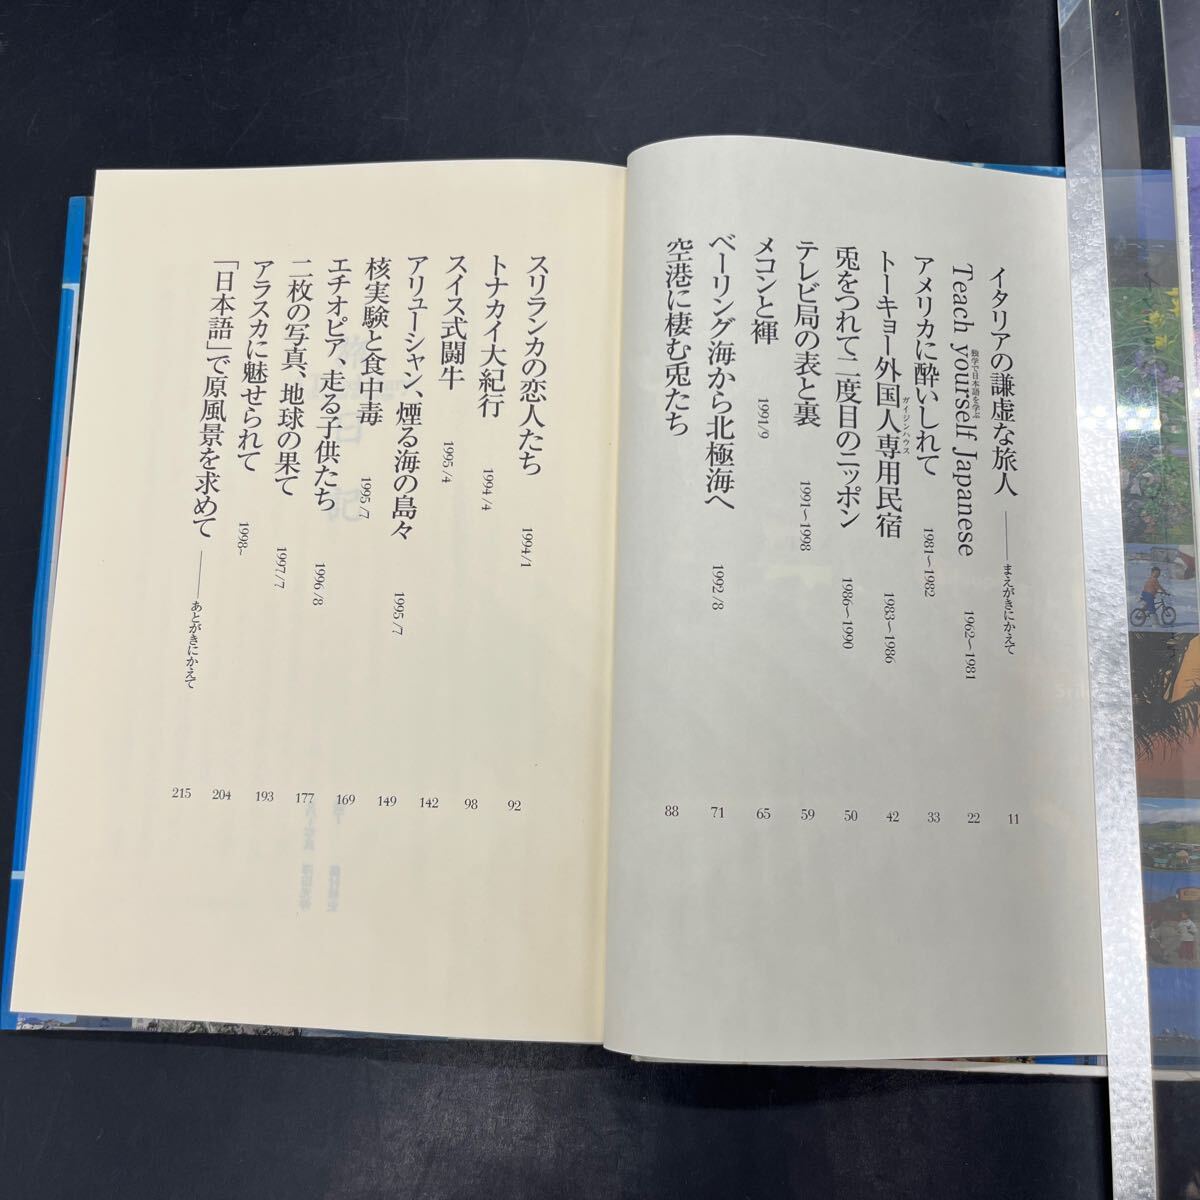 イタリアの謙虚な旅人 ――まえがきにかえて 11
Teach yourself Japanese 独学で日本語を学ぶ 1962〜1981 22
アメリカに酔いしれて 1981〜1982 33
トーキョー外国人専用民宿 ガイジンハウス 1983〜1986 42
兎をつれて二度目のニッポン 1986〜1990 50
テレビ局の表と裏 1991〜1998 59
メコンと褌 1991/9 65
ベーリング海から北極海へ 1992/8 71
空港に棲む兎たち 88
スリランカの恋人たち 1994/1 92
トナカイ大紀行 1994/4 98
スイス式闘牛 1995/4 142
アリューシャン、煙る海の島々 1995/7 149
核実験と食中毒 1995/7 169
エチオピア、走る子供たち 1996/8 177
二枚の写真、地球の果て 1997/7 193
アラスカに魅せられて 1998~ 204
「日本語」で原風景を求めて ――あとがきにかえて 215